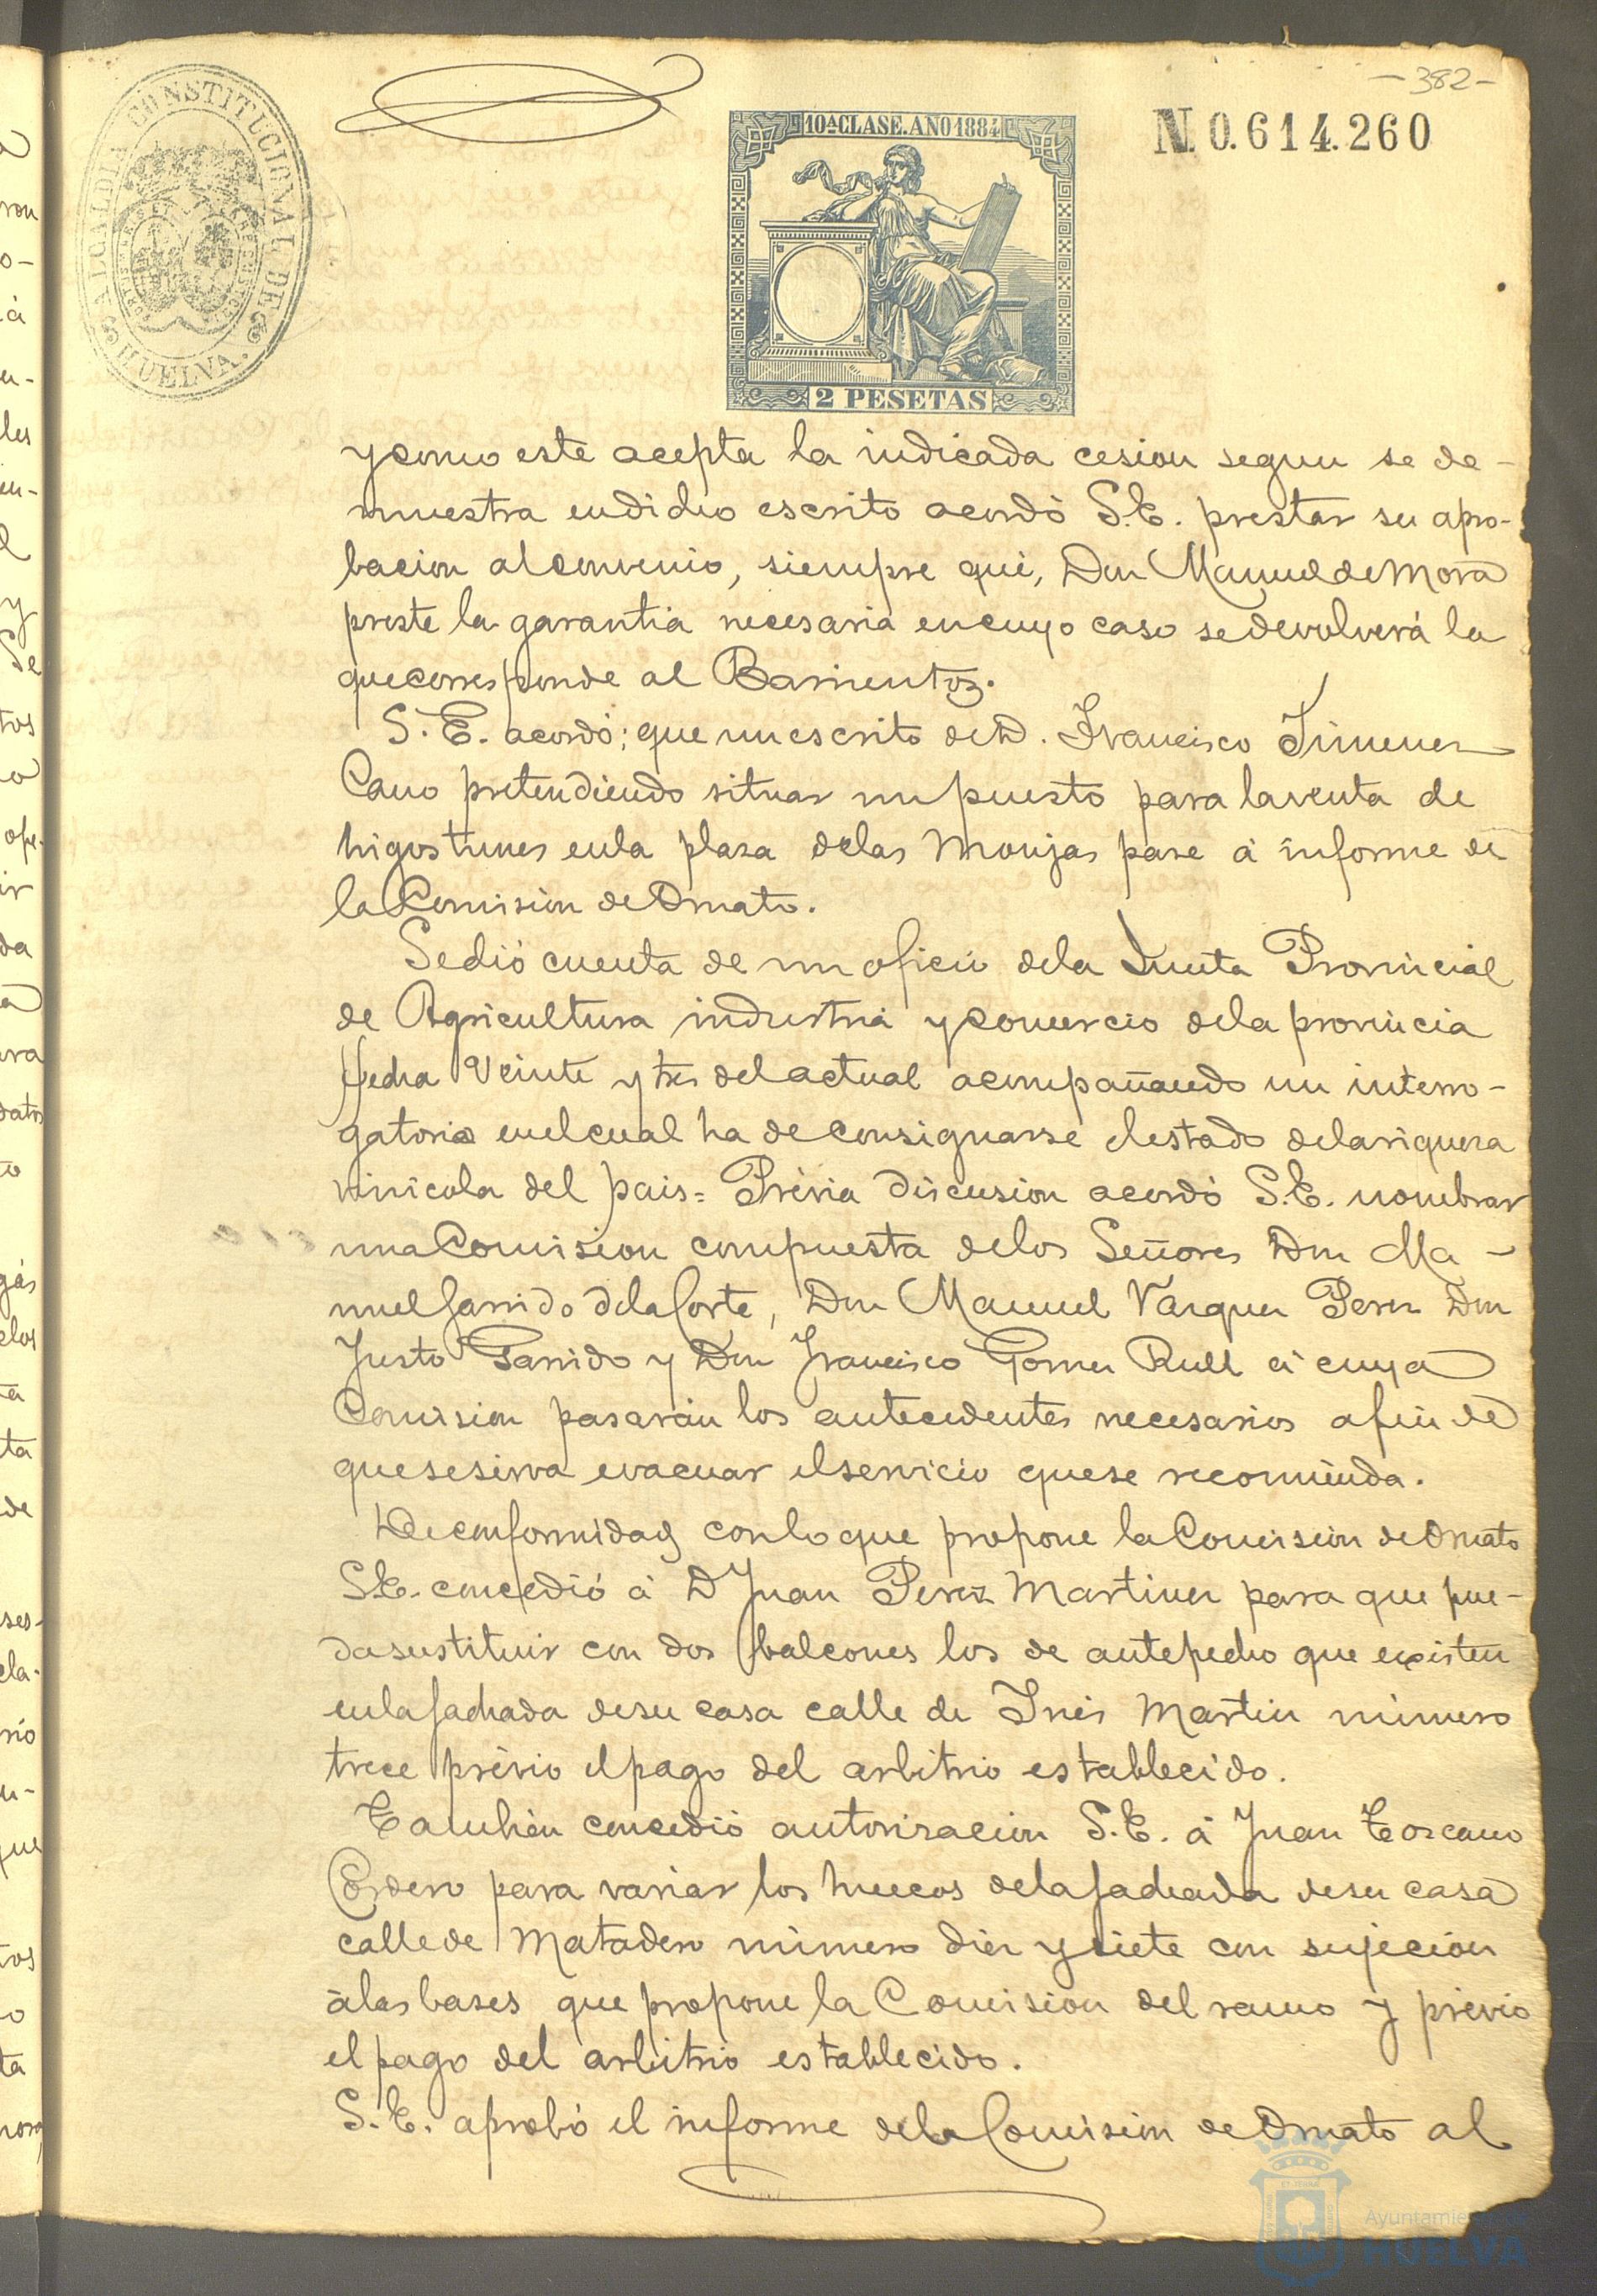 -382-
ALCALDIA CONSTITUCIONAL DE HUELVA.
10ª CLASE. AÑO 1884
N. 0.614.260
2 PESETAS
y como este acepta la indicada cesion segun se de-
muestra en dicho escrito acordó S.E. prestar su apro-
bacion al convenio, siempre que, Don Manuel de Mora
preste la garantia necesaria en cuyo caso se devolverá la
que corresponde al Barrientos.
S. E. acordó; que un escrito de D. Francisco Jimenez
Cano pretendiendo situar un puesto para la venta de
higos tunes en la plaza de las Monjas pase á informe de
la Comision de Ornato.
Se dió cuenta de un oficio de la Junta Provincial
de Agricultura industria y comercio de la provincia
fecha veinte y tres del actual acompañando un interro-
gatorio en el cual ha de consignarse el estado de la riqueza
vinicola del pais= Prévia discusion acordó S.E. nombrar
una Comision compuesta de los Señores Don Ma-
nuel Garrido de la Corte, Don Manuel Vazquez Perez Don
Justo Garrido y Don Francisco Gomez Rull á cuya
Comision pasarán los antecedentes necesarios a fin de
que se sirva evacuar el servicio que se recomienda.
De conformidad con lo que propone la Comision de Ornato
S.E. concedió á D Juan Perez Martinez para que pue-
da sustituir con dos balcones los de antepecho que existen
en la fachada de su casa calle de Inés Martin número
trece prévio el pago del arbitrio establecido.
Tambien concedió autorizacion S.E. á Juan Toscano
Cordero para variar los huecos de la fachada de su casa
calle de Matadero número diez y siete con sujecion
á las bases que propone la Comision del ramo y prévio
el pago del arbitrio establecido.
S.E. aprobó el informe de la Comision de Ornato al
Ayuntamiento de
HUELVA